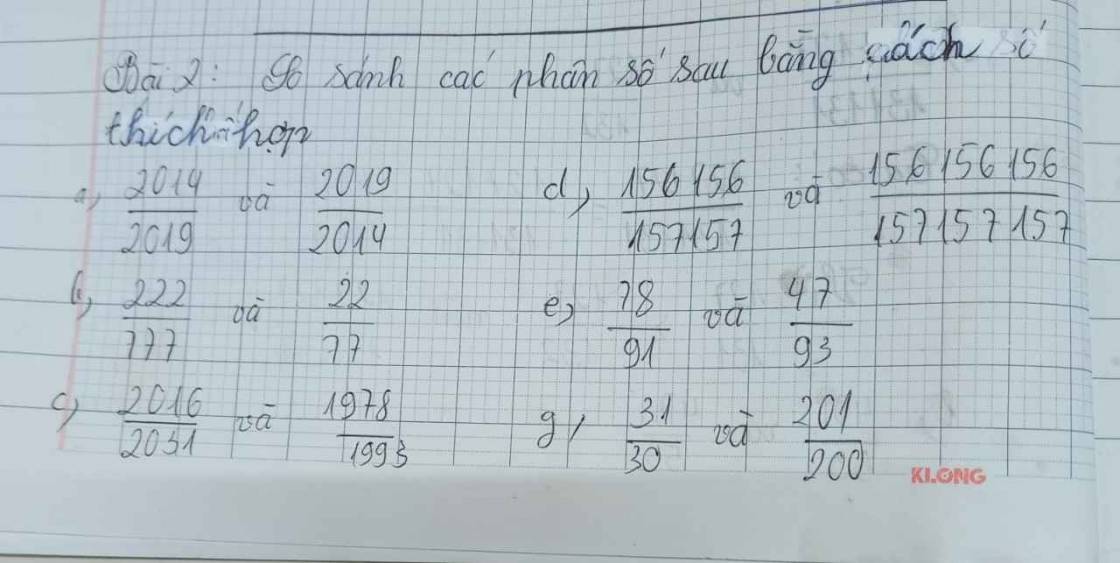 Bài 2: So sánh các phân số sau bằng cách số
thích hợp
a, 2014/2019 và 2019/2014
d, 156156/157157 và 156156156/157157157
b, 222/777 và 22/77
e, 78/91 và 47/93
c, 2016/2031 và 1978/1993
g, 31/30 và 201/200
KLONG